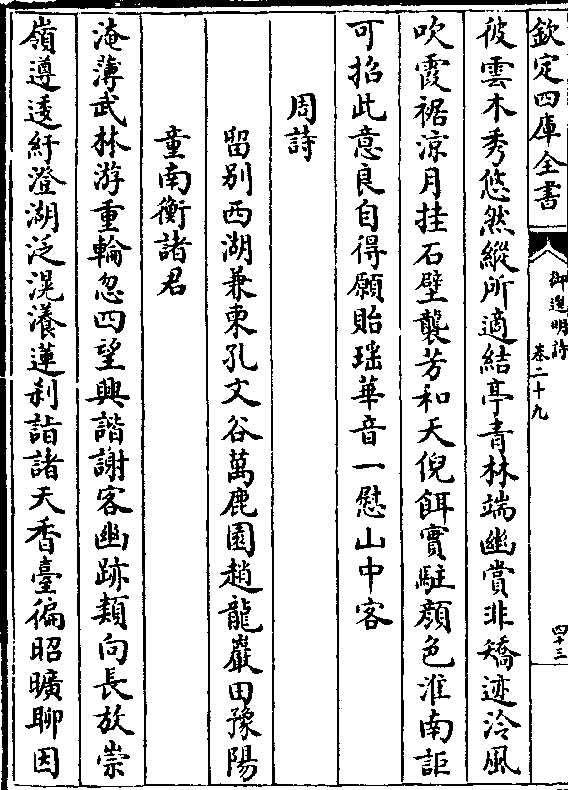 欽定四庫全書
御選明詩
卷二十九
四十三
彼雲木秀悠然縱所適結亭青林端幽賞非矯迹泠風
吹霞裾涼月挂石壁襲芳和天倪餌實駐顔色淮南詎
可招此意良自得願貽瑶華音一慰山中客
周詩
留别西湖兼柬孔文谷萬鹿園趙龍巖田豫陽
童南衡諸君
淹薄武林游重輪忽四望興諧謝客幽跡類向長放崇
嶺遵逶紆澄湖泛滉瀁蓮刹詣諸天香臺徧昭曠聊因